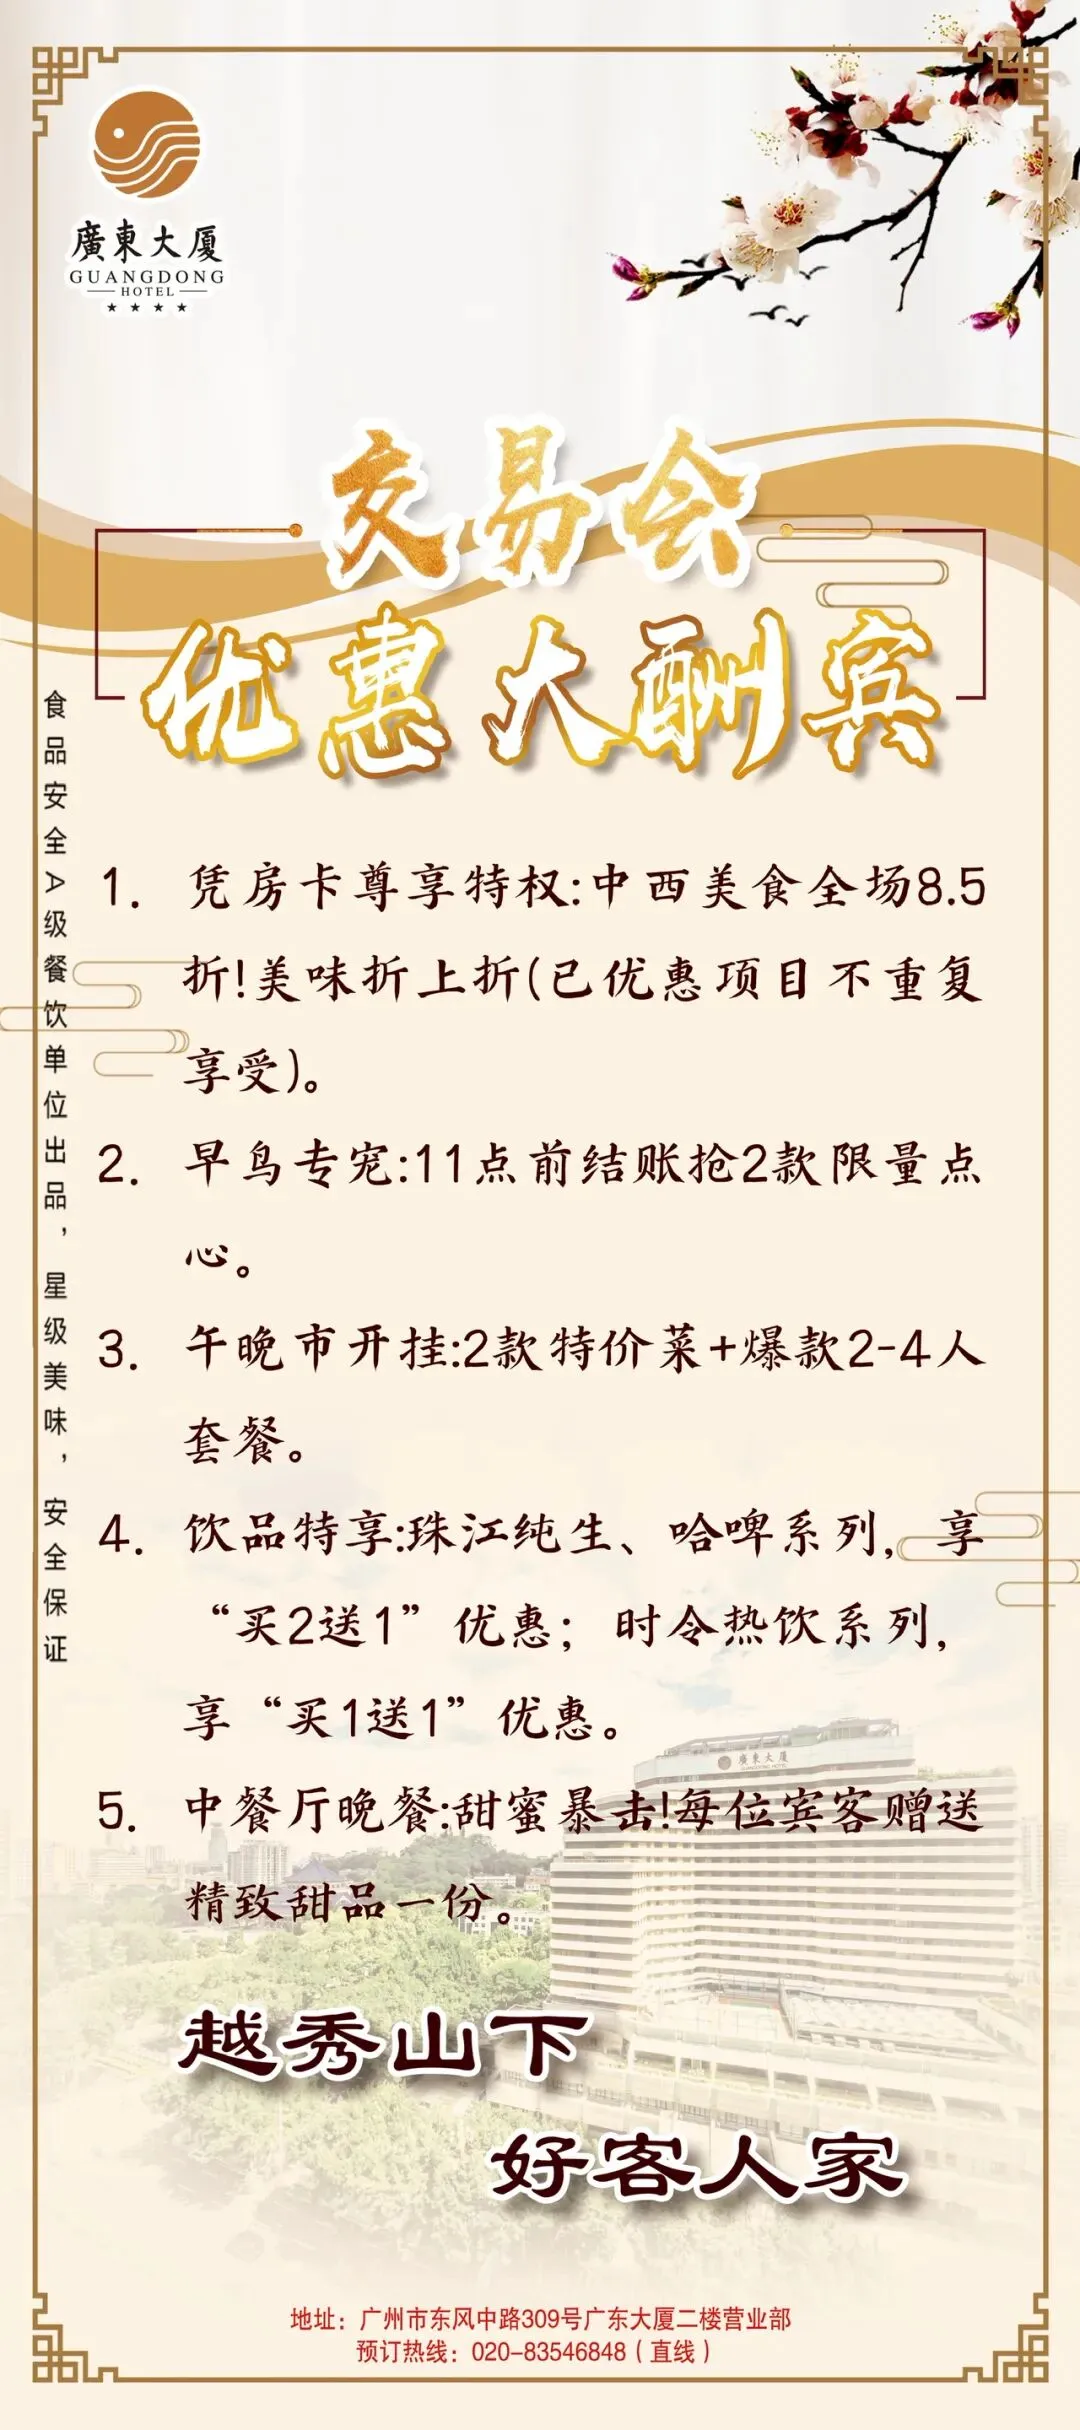 廣東大厦
GUANGDONG
HOTEL
交易会
优惠大酬宾
食品安全A级餐饮单位出品，星级美味，安全保证
1. 凭房卡尊享特权:中西美食全场8.5
折!美味折上折(已优惠项目不重复
享受)。
2. 早鸟专宠:11点前结账抢2款限量点
心。
3. 午晚市开挂:2款特价菜+爆款2-4人
套餐。
4. 饮品特享:珠江纯生、哈啤系列，享
“买2送1”优惠；时令热饮系列，
享“买1送1”优惠。
5. 中餐厅晚餐:甜蜜暴击!每位宾客赠送
精致甜品一份。
廣東大厦
GUANGDONG HOTEL
越秀山下
好客人家
地址：广州市东风中路309号广东大厦二楼营业部
预订热线：020-83546848（直线）